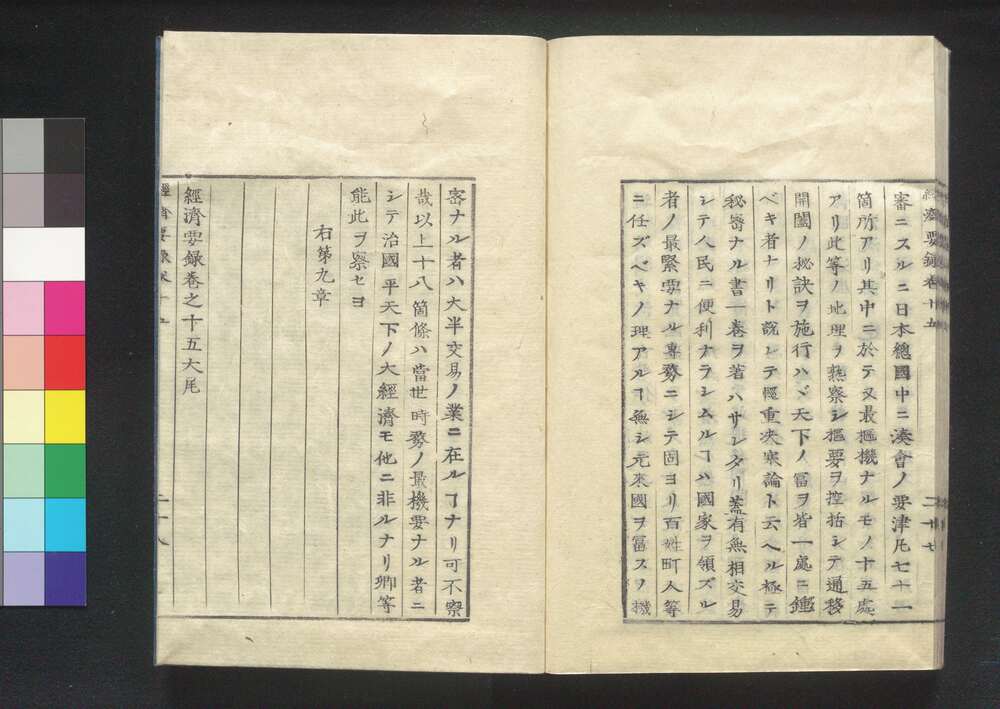 經濟要錄卷十五
審ニスルニ日本總國中ニ湊會ノ要津凡七十一
箇所アリ其中ニ於テ又最樞機ナルモノ十五處
アリ此等ノ地理ヲ熟察シ樞要ヲ控括シテ通移
開闔ノ秘訣ヲ施行ハヾ天下ノ富ヲ皆一處ニ鍾
ベキ者ナリト説シテ輕重夾寀論ト云ヘル極テ
秘密ナル書一卷ヲ著ハサレタリ蓋有無相交易
シテ人民ニ便利ナラシムルヿハ國家ヲ領ズル
者ノ最緊要ナル專務ニシテ固ヨリ百姓町人等
ニ任ズベキノ理アルヿ無シ元來國ヲ富スヲ機
二十七
密ナル者ハ大半交易ノ業ニ在ルヿナリ可不察
哉以上十八箇條ハ當世時務ノ最機要ナル者ニ
シテ治國平天下ノ大經濟モ他ニ非ルナリ卿等
能此ヲ察セヨ
右第九章
經濟要錄卷之十五大尾
經濟要錄卷十五
二十八